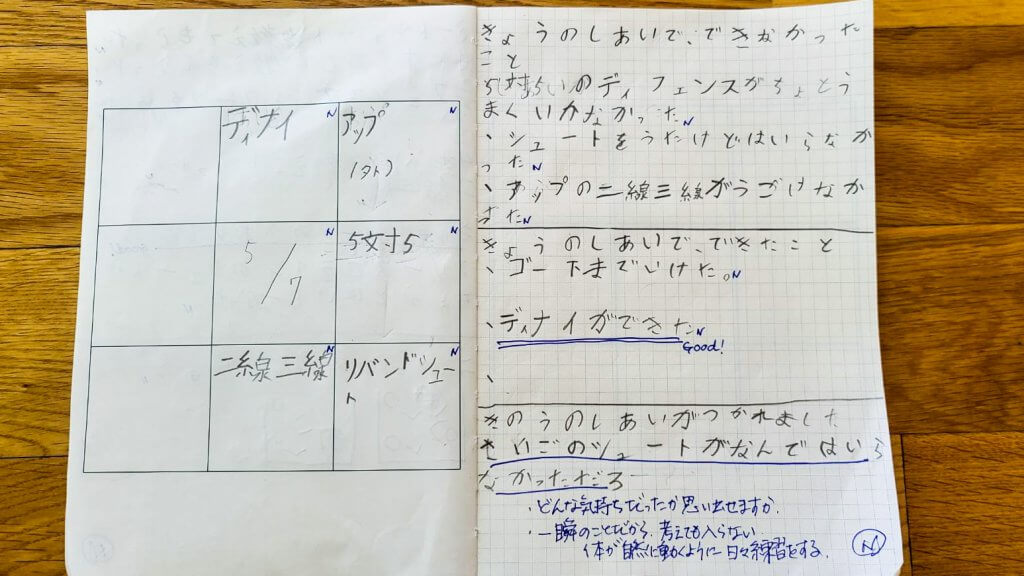 ディナイ N
アップ N
(外)
5/7 N
5対5 N
二線三線 N
リバンドシュー N
ト
きょうのしあいで、できなかった
こと
5対5いのディフェンスがちょとう
まくいかなかった N
、シュートをうたけどはいらなか
った N
、アップの二線三線がうごけなか
た N
きょうのしあいで、できたこと
、ゴー下までいけた。N
、ディナイができた N
Good!
、
きのうのしあいがつかれました
さいごのシュートがなんではいら
なかっただろ
・どんな気持ちだったか思い出せますか。
・一瞬のことだから、考えても入らない
体が自然に動くように日々練習をする。
N